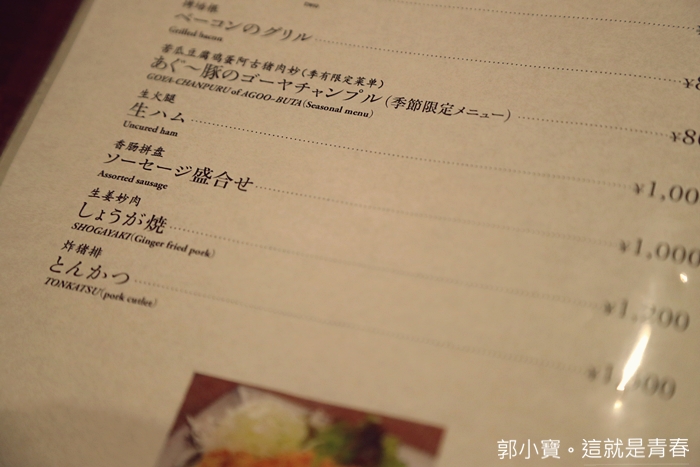 ベーコンのグリル
Grilled bacon
苦瓜豆腐鸡蛋阿古猪肉炒(季有限定菜单)
あぐ〜豚のゴーヤチャンプル(季節限定メニュー)
GOYA-CHANPURU of AGOO-BUTA(Seasonal menu)
生火腿
生ハム
¥1,00
Uncured ham
香肠拼盘
ソーセージ盛合せ
¥1,000
Assorted sausage
生姜炒肉
しょうが焼
¥1,200
SHOGAYAKI(Ginger fried pork)
炸猪排
とんかつ
TONKATSU(pork cutlet)
郭小寶。這就是青春